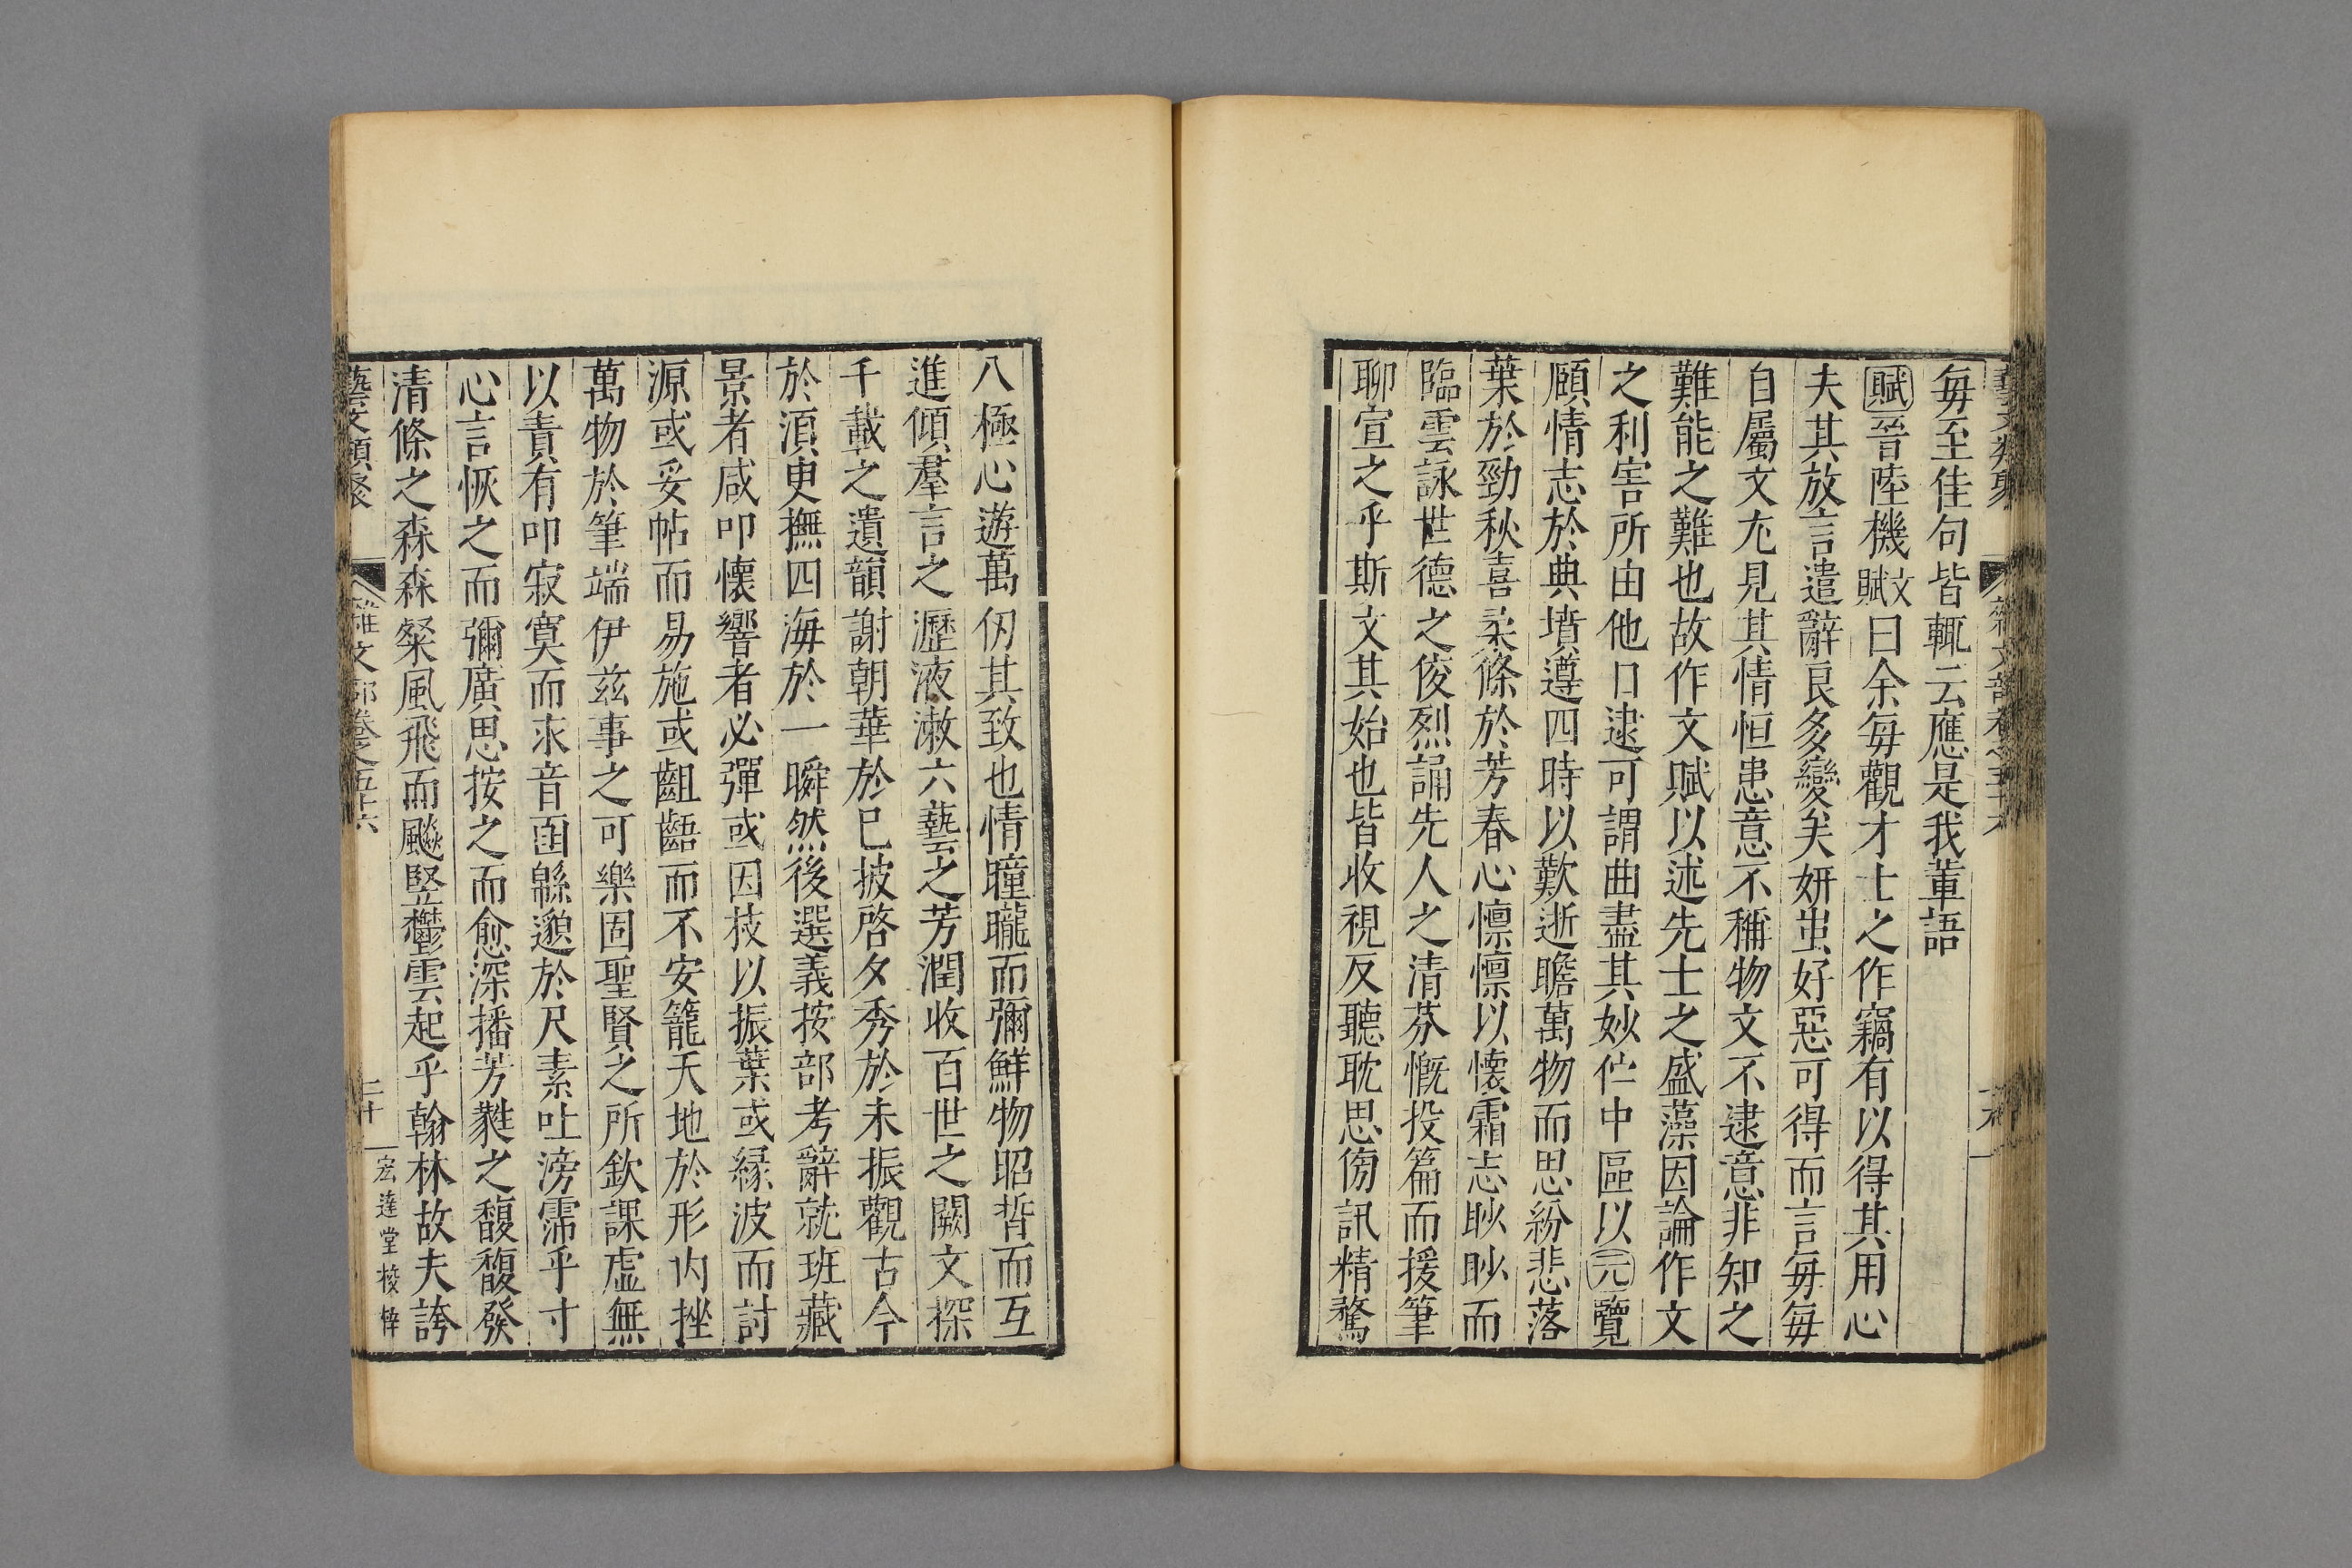 每至佳句皆輒云應是我輩語
賦晉陸機文賦曰余每觀才士之作竊有以得其用心
夫其放言遣辭良多變矣妍蚩好惡可得而言每每
自屬文尤見其情恒患意不稱物文不逮意非知之
難能之難也故作文賦以述先士之盛藻因論作文
之利害所由他日逮可謂曲盡其妙伫中區以元覽
頤情志於典墳遵四時以歎逝瞻萬物而思紛悲落
葉於勁秋喜柔條於芳春心懍懍以懷霜志眇眇而
臨雲詠世德之俊烈誦先人之清芬慨投篇而援筆
聊宣之乎斯文其始也皆收視反聽耽思傍訊精騖
八極心遊萬仞其致也情曈曨而彌鮮物昭晢而互
進傾羣言之瀝液漱六藝之芳潤收百世之闕文採
千載之遺韻謝朝華於已披啓夕秀於未振觀古今
於須臾撫四海於一瞬然後選義按部考辭就班藏
景者咸叩懷響者必彈或因枝以振葉或緣波而討
源或妥帖而易施或齟齬而不安籠天地於形内挫
萬物於筆端伊兹事之可樂固聖賢之所欽課虛無
以責有叩寂寞而求音函緜邈於尺素吐滂霈乎寸
心言恢之而彌廣思按之而愈深播芳蕤之馥馥發
清條之森森粲風飛而飈竪鬱雲起乎翰林故夫誇
藝文類聚 雜文部卷之五十六 二十 宏達堂校梓